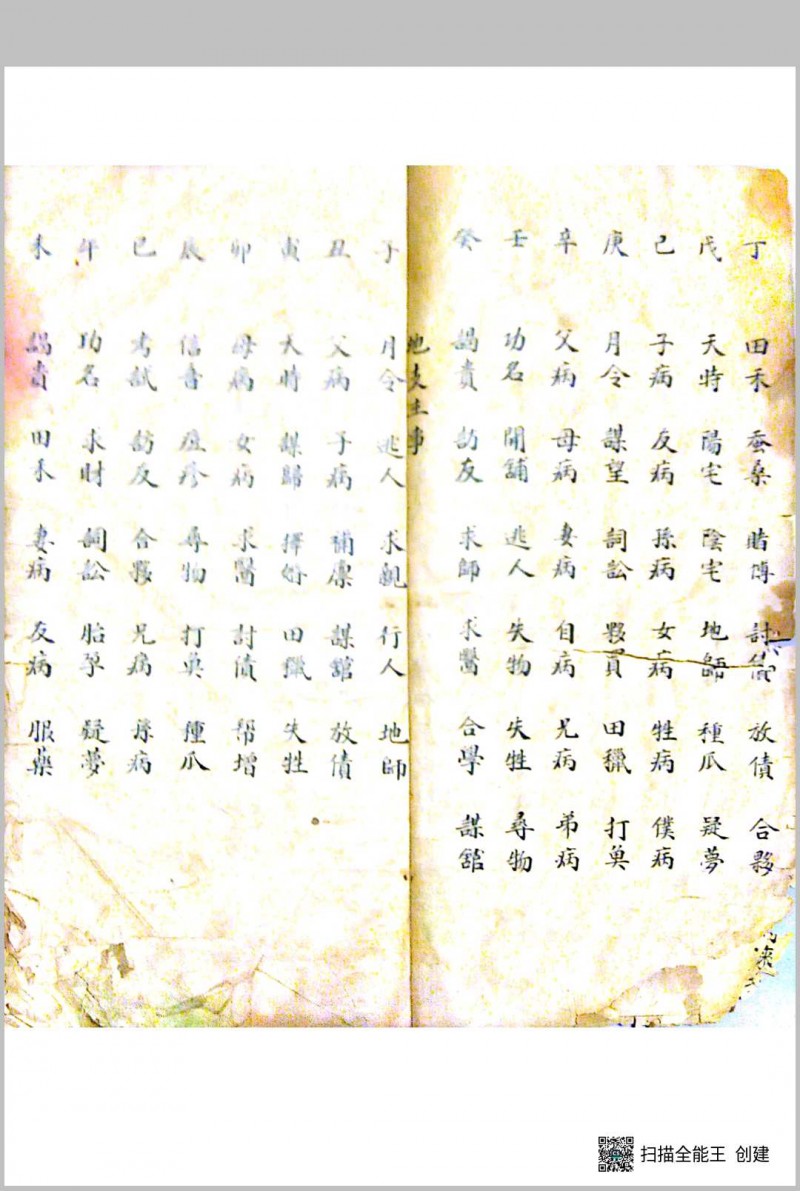 丁 田禾 蚕桑 賭博 討債 放債 合夥
戊 天時 陽宅 陰宅 地師 種瓜 疑夢
己 子病 友病 孫病 女病 牲病 僕病
庚 月令 謀望 詞訟 夥買 田獵 打奠
辛 父病 母病 妻病 自病 兄病 弟病
壬 功名 開舖 逃人 失物 失牲 尋物
癸 謁貴 訪友 求師 求醫 合學 謀舘
地支主事
子 月令 逃人 求親 行人 地師
丑 父病 子病 補廪 謀舘 放債
寅 天時 謀歸 擇婚 田獵 失牲
卯 母病 女病 求醫 討債 帮增
辰 信書 痘疹 尋物 打奠 種瓜
巳 考試 訪友 合夥 兄病 孫病
午 功名 求財 詞訟 胎孕 疑夢
未 謁貴 田禾 妻病 友病 服藥
扫描全能王 创建